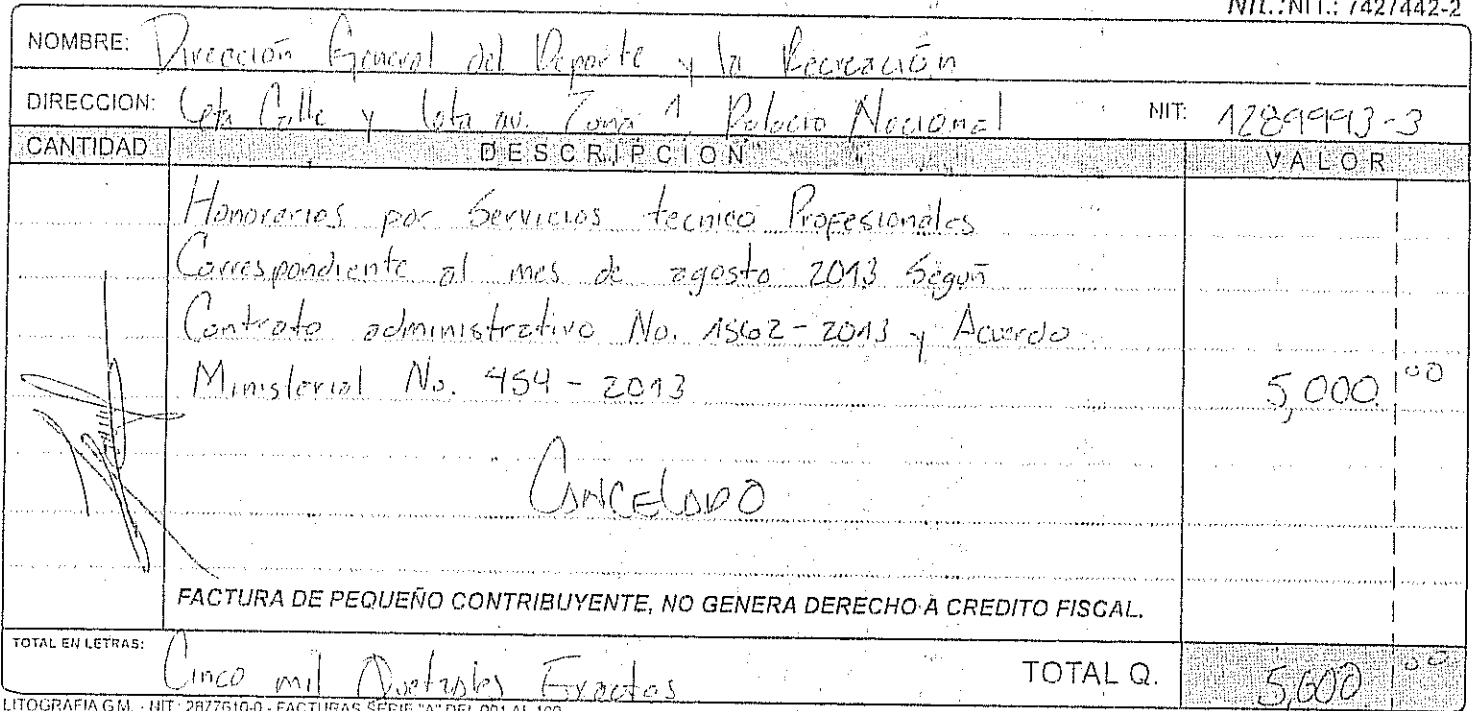 NIT.:NIT.: 7427442-2
NOMBRE: Dirección General del Deporte y la Recreación
DIRECCION: 6ta Calle y 6ta av. Zona 1, Palacio Nacional NIT: 1289993-3
CANTIDAD DESCRIPCION VALOR
Honorarios por Servicios tecnico Profesionales
Correspondiente al mes de agosto 2013 Según
Contrato administrativo No. 1562-2013 y Acuerdo
Ministerial No. 454-2013 5,000.00
CANCELADO
FACTURA DE PEQUEÑO CONTRIBUYENTE, NO GENERA DERECHO A CREDITO FISCAL.
TOTAL EN LETRAS: Cinco mil Quetzales Exactos TOTAL Q. 5,000 00
LITOGRAFIA G.M. - NIT: 2877610-0 - FACTURAS SERIE "A" DEL 001 AL 100